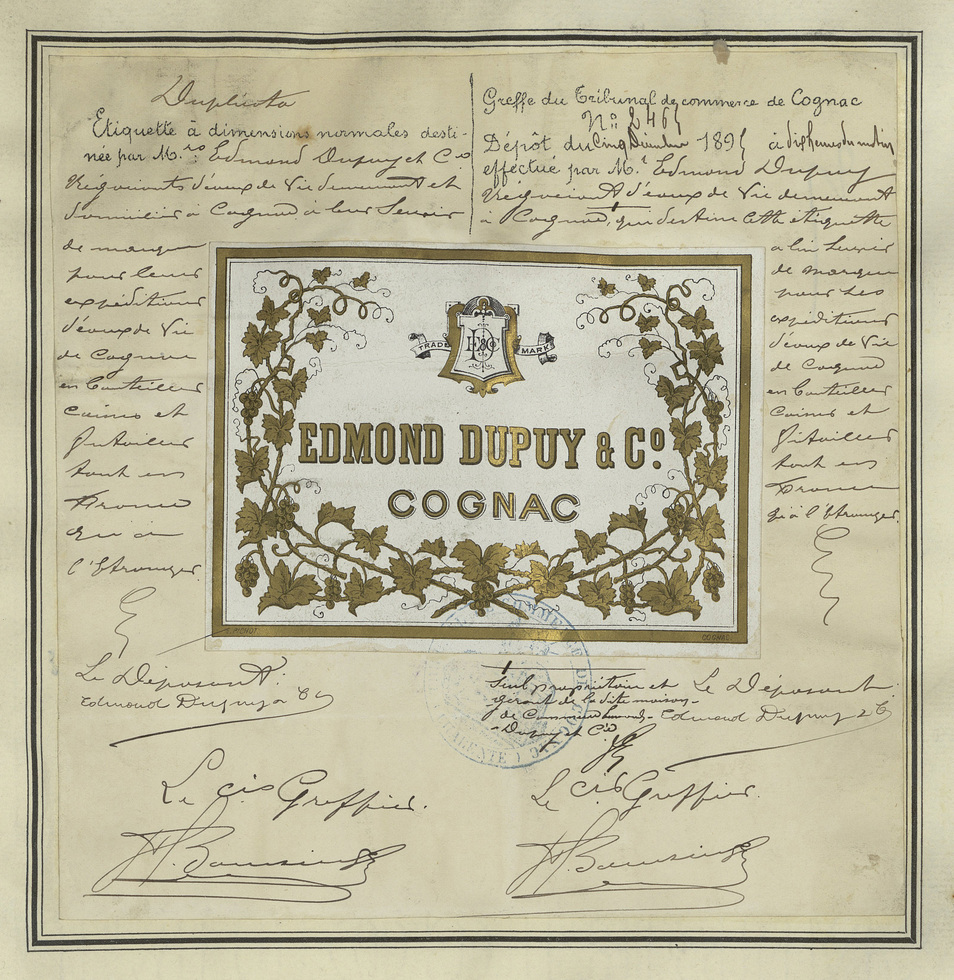 Duplicata
Etiquette à dimensions normales desti-
née par M.rs Edmond Dupuy et Cie
Négociants d'eaux de Vie demeurant et
domiciliés à Cognac à leur Servir
de marque
pour leurs
expéditions
d'eaux de Vie
de Cognac
en bouteilles
caisses et
futailles
tant en
France
qu'à
l'Etranger.
Le Déposant:
Edmond Dupuy & Co
Le cis Greffier.
Greffe du Tribunal de commerce de Cognac
No: 2465
Dépôt du cinq 1895 à dix heures du matin
effectué par M.r Edmond Dupuy
Négociant d'eaux de Vie demeurant
à Cognac, qui destine cette étiquette
à lui Servir
de marque
pour ses
expéditions
d'eaux de Vie
de Cognac
en bouteilles
Caisses et
futailles
tant en
France
qu'à l'Etranger.
TRADE MARK
EDMOND DUPUY & Co.
COGNAC
COGNAC
Seul propriétaire et
gérant de la dite maison
de Commerce Edmond
Dupuy et Cie
Le Déposant
Edmond Dupuy & Co
Le cis Greffier.